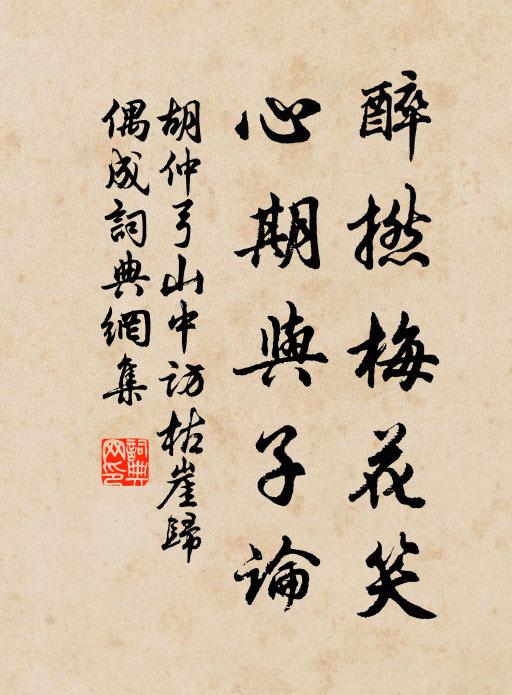 醉撚梅花笑
心期與子論
胡仲弓山中訪枯崖歸
偶成詞典網集
詞典
网印